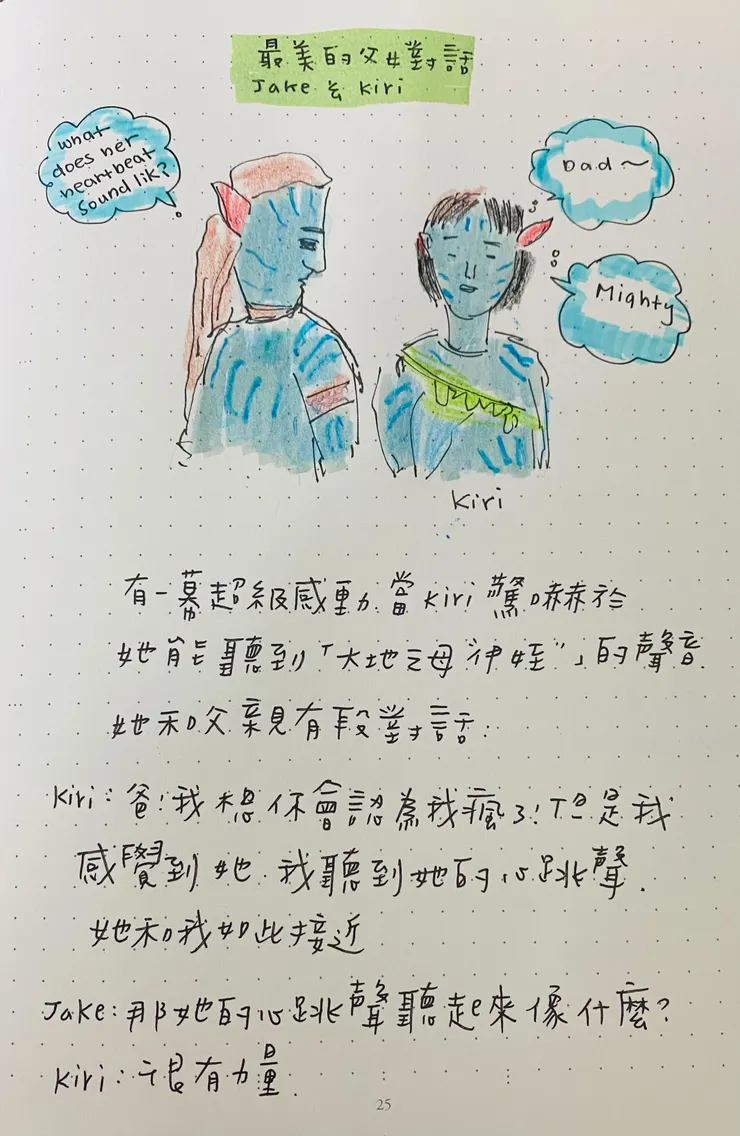 最美的父女對話
Jake & Kiri
what
does her
heartbeat
sound lik?
Dad~
Mighty
Kiri
有一幕超級感動,當Kiri 驚嚇於
她能聽到「大地之母 伊娃」的聲音.
她和父親有段對話:
Kiri: 爸!我想你會認為我瘋了!但是我
感覺到她.我聽到她的心跳聲.
她和我如此接近
Jake: 那她的心跳聲聽起來像什麼?
Kiri: 很有力量.
25